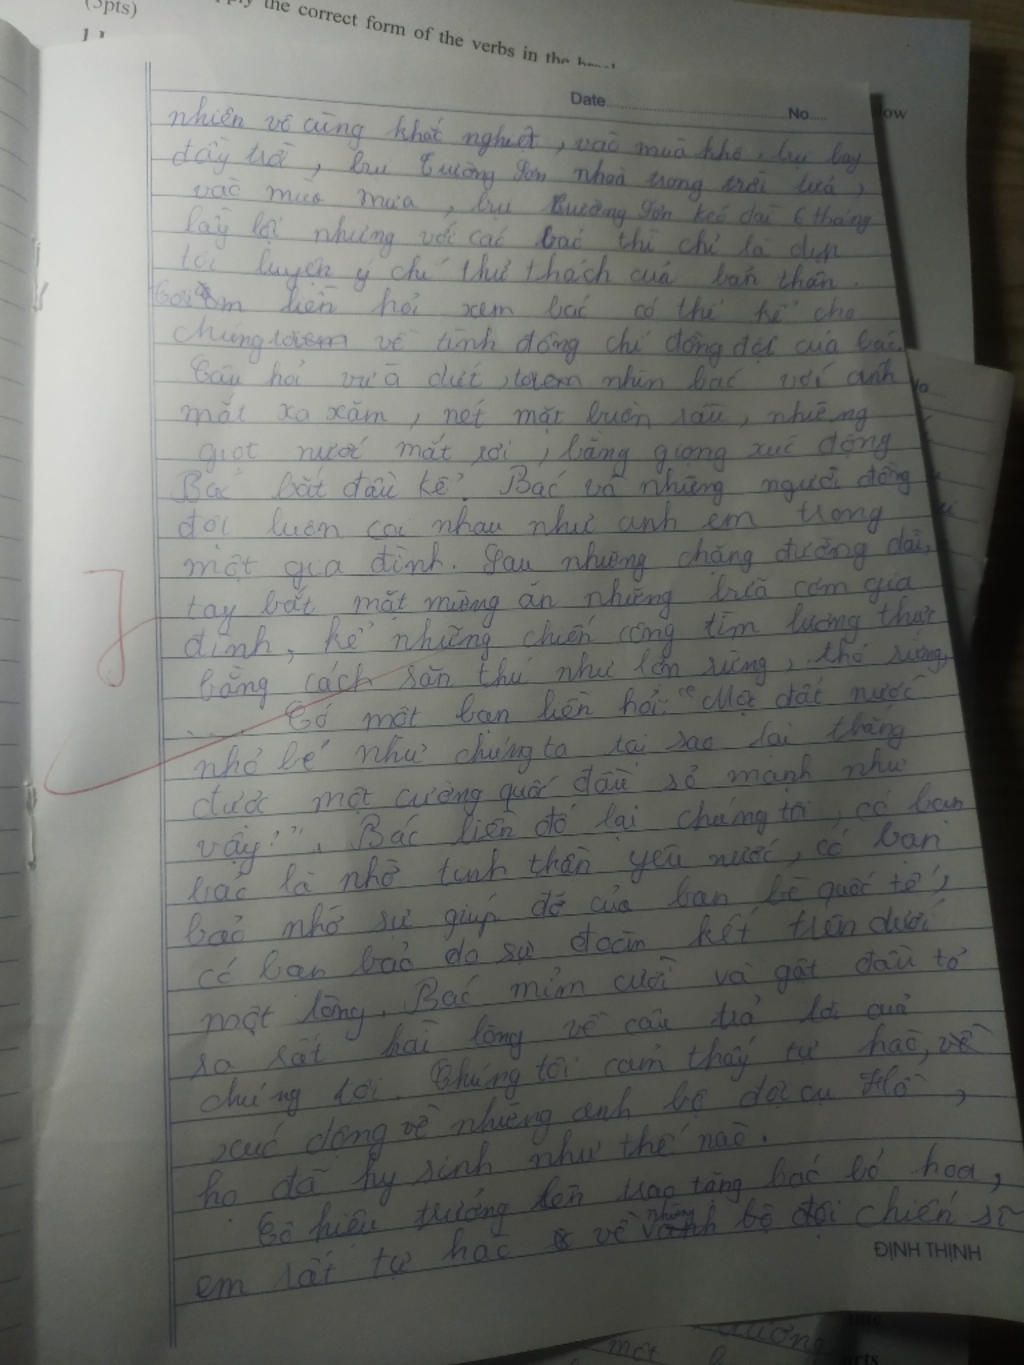 (5pts)
the correct form of the verbs in the
low
Date
No
nhiên vô cùng khắc nghiệt, vào mùa khô, bụi bay
đầy trời, bụi Trường Sơn nhoà trong trời lửa,
vào mùa mưa, bụi Trường Sơn kéo dài 6 tháng
lầy lội nhưng với các bác thì chỉ là dịp
tôi luyện ý chí thử thách cuả bản thân.
em liền hỏi xem bác có thể kể cho
chúng em về tình đồng chí đồng đội của bác.
Câu hỏi vừa dứt, em nhìn bác với ánh
mắt xa xăm, nét mặt buồn sầu, những
giọt nước mắt rơi, bằng giọng xúc động
Bác bắt đầu kể: Bác và những người đồng
đội luôn coi nhau như anh em trong
một gia đình. Sau những chặng đường dài,
tay bắt mặt mừng ăn những bữa cơm gia
đình, kể những chiến công tìm lương thực
bằng cách săn thú như lợn rừng, thỏ rừng,
.... Có một bạn liền hỏi: "Một đất nước
nhỏ bé như chúng ta tại sao lại thắng
được một cường quốc đầu sỏ mạnh như
vậy?". Bác liền đố lại chúng tôi, có bạn
bảo là nhờ tinh thần yêu nước, có bạn
bảo nhờ sự giúp đỡ của bạn bè quốc tế,
có bạn bảo do sự đoàn kết trên dưới
một lòng. Bác mỉm cười và gật đầu tỏ
ra rất hài lòng về câu trả lời của
chúng tôi. Chúng tôi cảm thấy tự hào, về
xúc động về những anh bộ đội cụ Hồ,
họ đã hy sinh như thế nào.
Cô hiệu trưởng lên trao tặng bác bó hoa,
em rất tự hào về những anh bộ đội chiến sĩ
ĐỊNH THỊNH